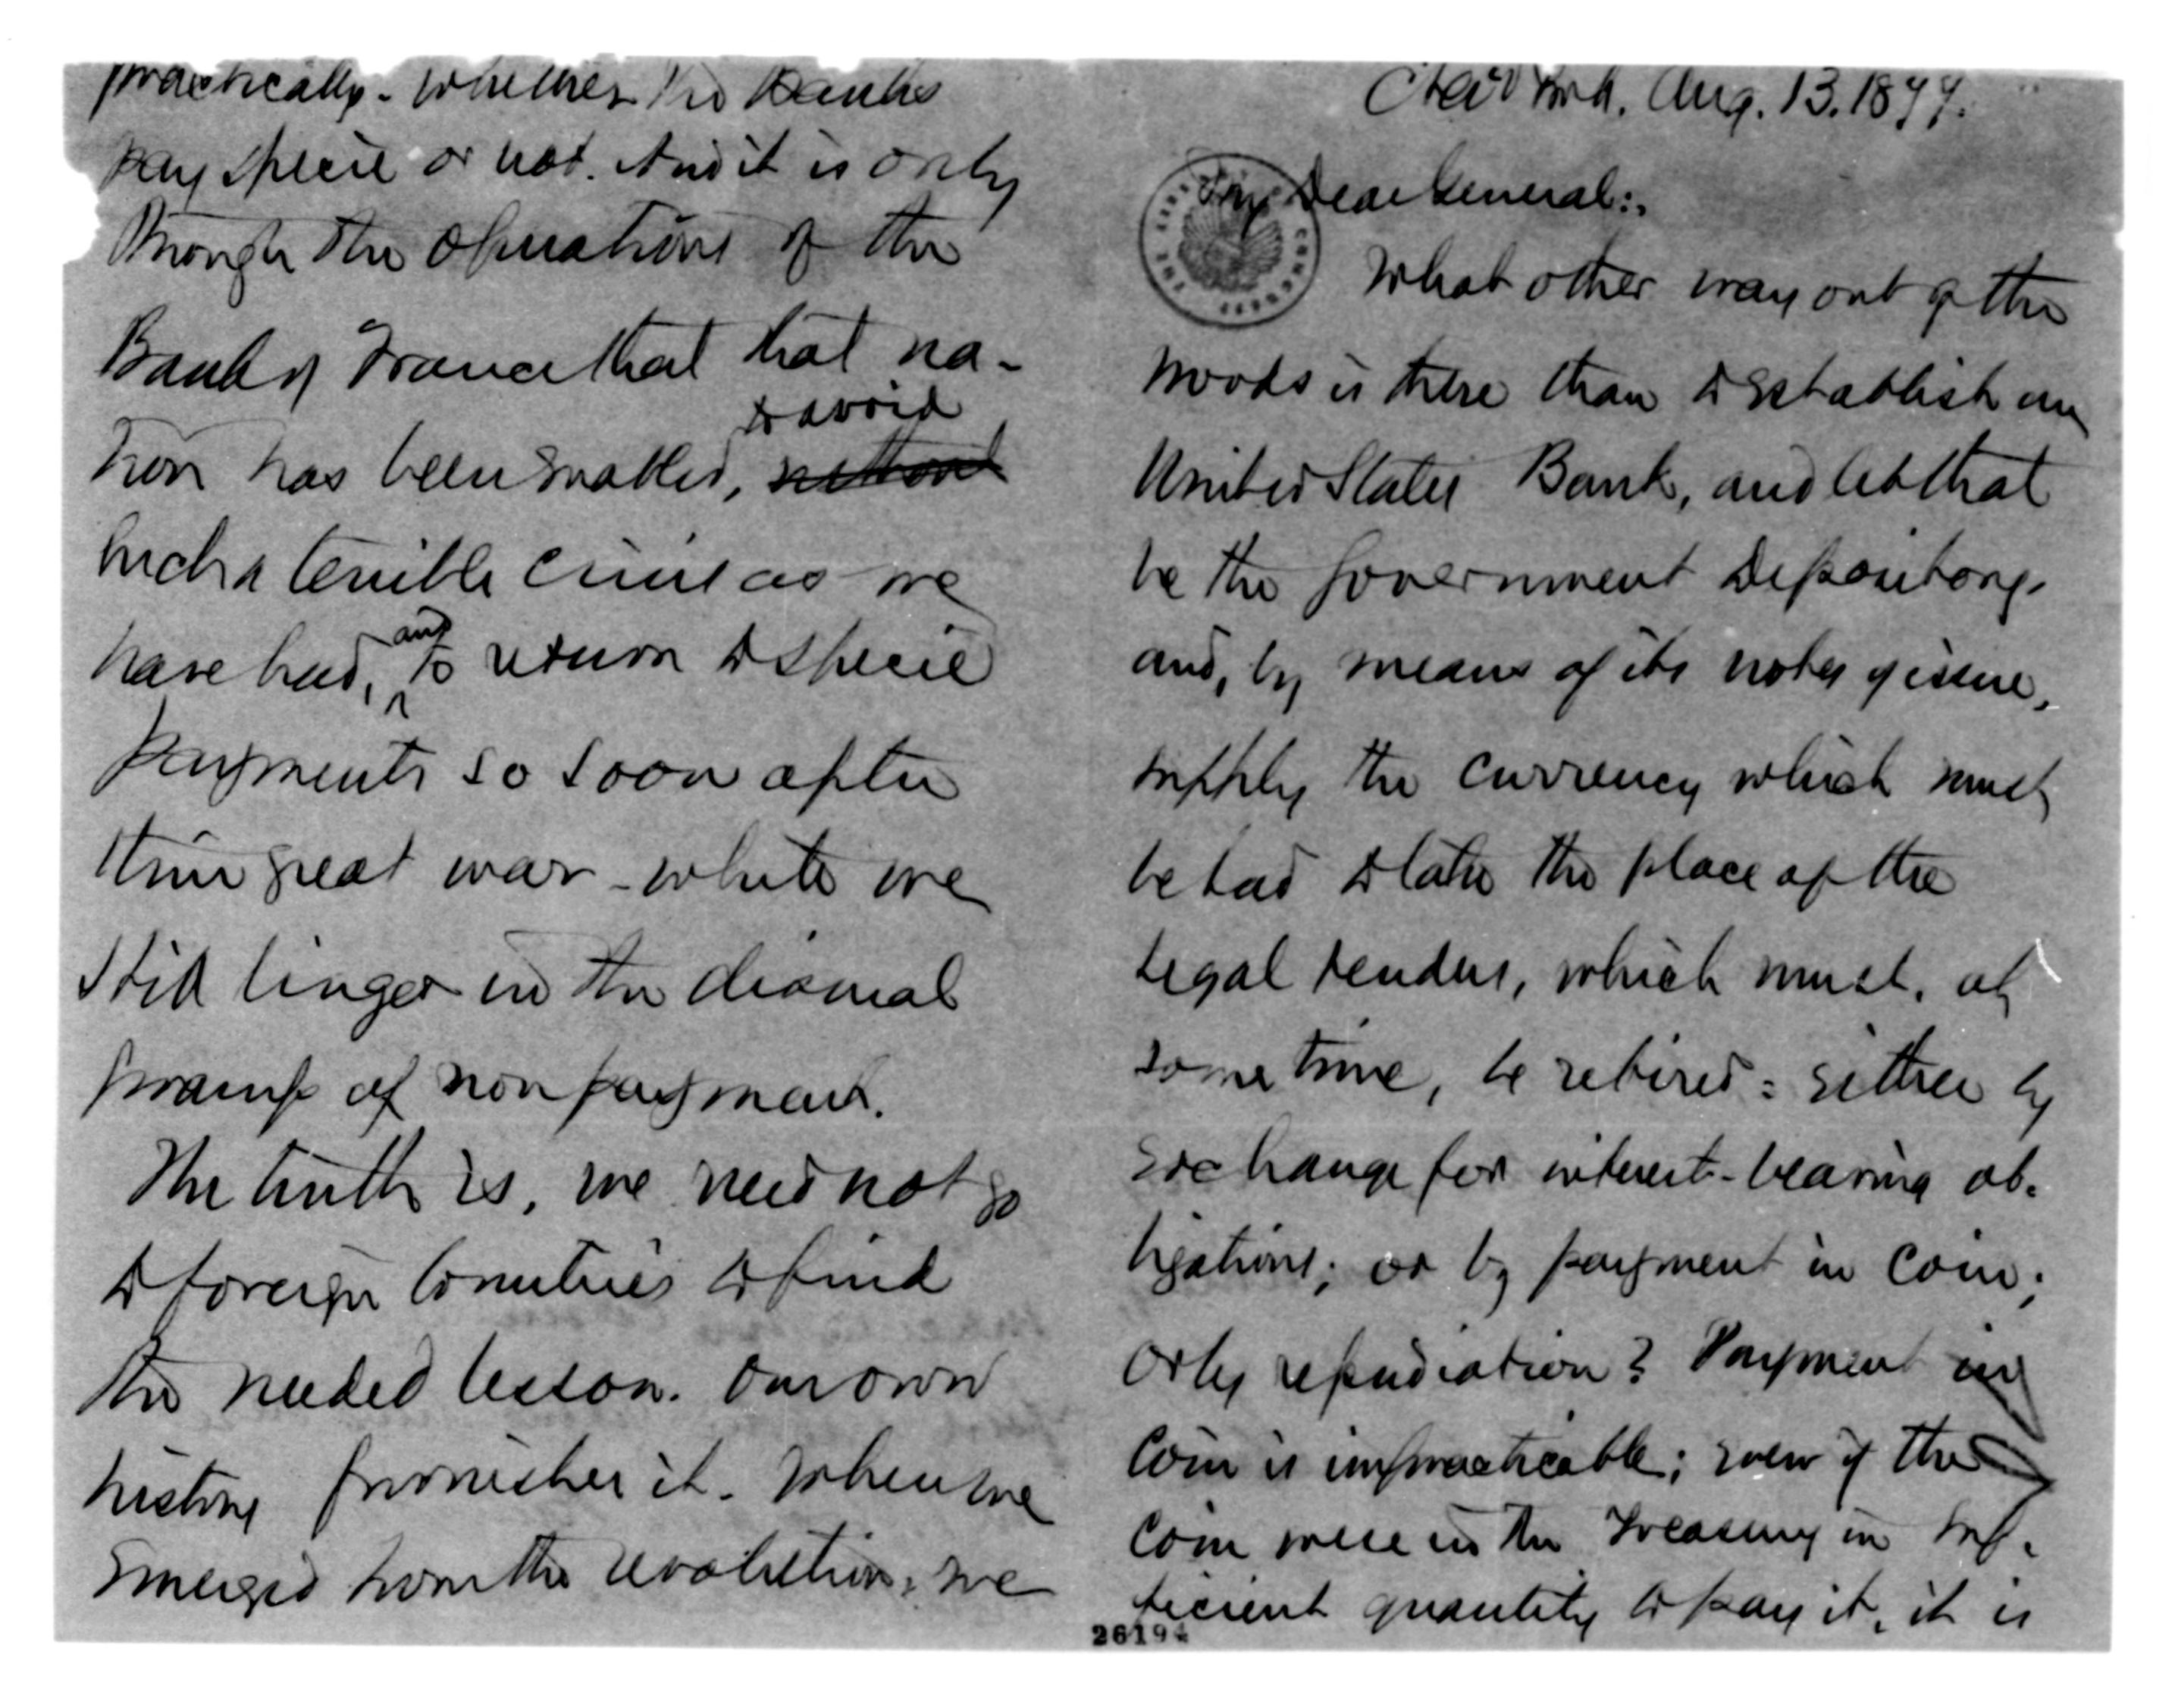 practically - whether the Banks
pay specie or not. And it is only
through the operations of the
Bank of France that that na-
to avoid
tion has been enabled,
such a terrible crisis as we
and
have had, to return to specie
payments so soon after
their great war - while we
still linger in the dismal
swamp of non payment.
The truth is, we need not go
to foreign Countries to find
the needed lesson. Our own
history furnishes it. When we
emerged from the revolution, we
New York. Aug. 13. 1877.
My Dear General:
What other way out of the
woods is there than to establish an
United States Bank, and let that
be the Government Depository.
and, by means of its notes of issue,
supply the currency which must
be had to take the place of the
legal tenders, which must, at
some time, be retired: either by
exchange for interest-bearing ob-
ligations; or by payment in coin;
or by repudiation? Payment in
Coin is impracticable; even if the
Coin were in the Treasury in suf-
ficient quantity to pay it, it is